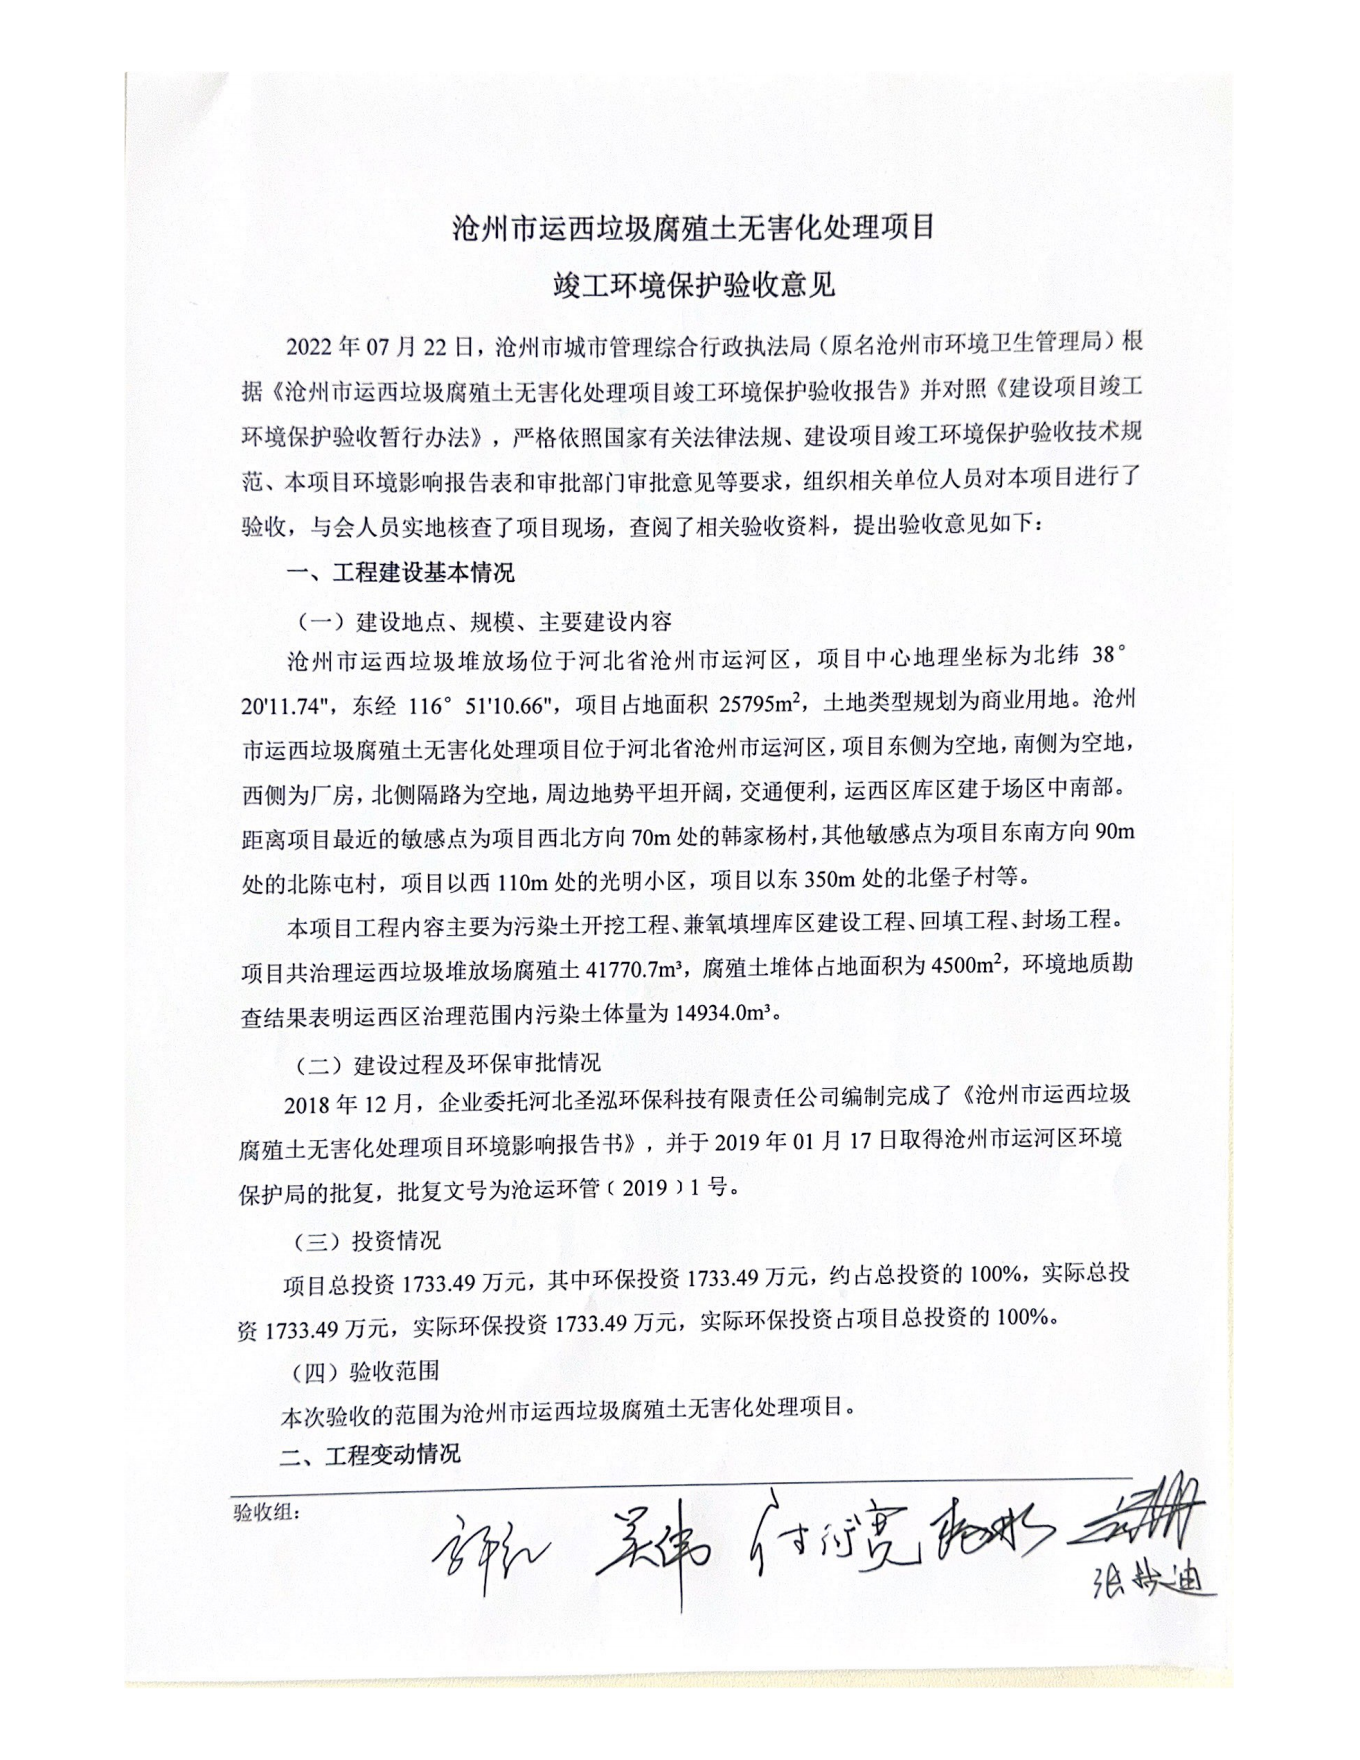 沧州市运西垃圾腐殖土无害化处理项目
竣工环境保护验收意见
2022 年 07 月 22 日，沧州市城市管理综合行政执法局（原名沧州市环境卫生管理局）根
据《沧州市运西垃圾腐殖土无害化处理项目竣工环境保护验收报告》并对照《建设项目竣工
环境保护验收暂行办法》，严格依照国家有关法律法规、建设项目竣工环境保护验收技术规
范、本项目环境影响报告表和审批部门审批意见等要求，组织相关单位人员对本项目进行了
验收，与会人员实地核查了项目现场，查阅了相关验收资料，提出验收意见如下：
一、工程建设基本情况
（一）建设地点、规模、主要建设内容
沧州市运西垃圾堆放场位于河北省沧州市运河区，项目中心地理坐标为北纬 38°
20'11.74"，东经 116° 51'10.66"，项目占地面积 25795m²，土地类型规划为商业用地。沧州
市运西垃圾腐殖土无害化处理项目位于河北省沧州市运河区，项目东侧为空地，南侧为空地，
西侧为厂房，北侧隔路为空地，周边地势平坦开阔，交通便利，运西区库区建于场区中南部。
距离项目最近的敏感点为项目西北方向 70m 处的韩家杨村，其他敏感点为项目东南方向 90m
处的北陈屯村，项目以西 110m 处的光明小区，项目以东 350m 处的北堡子村等。
本项目工程内容主要为污染土开挖工程、兼氧填埋库区建设工程、回填工程、封场工程。
项目共治理运西垃圾堆放场腐殖土 41770.7m³，腐殖土堆体占地面积为 4500m²，环境地质勘
查结果表明运西区治理范围内污染土体量为 14934.0m³。
（二）建设过程及环保审批情况
2018 年 12 月，企业委托河北圣泓环保科技有限责任公司编制完成了《沧州市运西垃圾
腐殖土无害化处理项目环境影响报告书》，并于 2019 年 01 月 17 日取得沧州市运河区环境
保护局的批复，批复文号为沧运环管﹝2019﹞1 号。
（三）投资情况
项目总投资 1733.49 万元，其中环保投资 1733.49 万元，约占总投资的 100%，实际总投
资 1733.49 万元，实际环保投资 1733.49 万元，实际环保投资占项目总投资的 100%。
（四）验收范围
本次验收的范围为沧州市运西垃圾腐殖土无害化处理项目。
二、工程变动情况
验收组：
吴伟